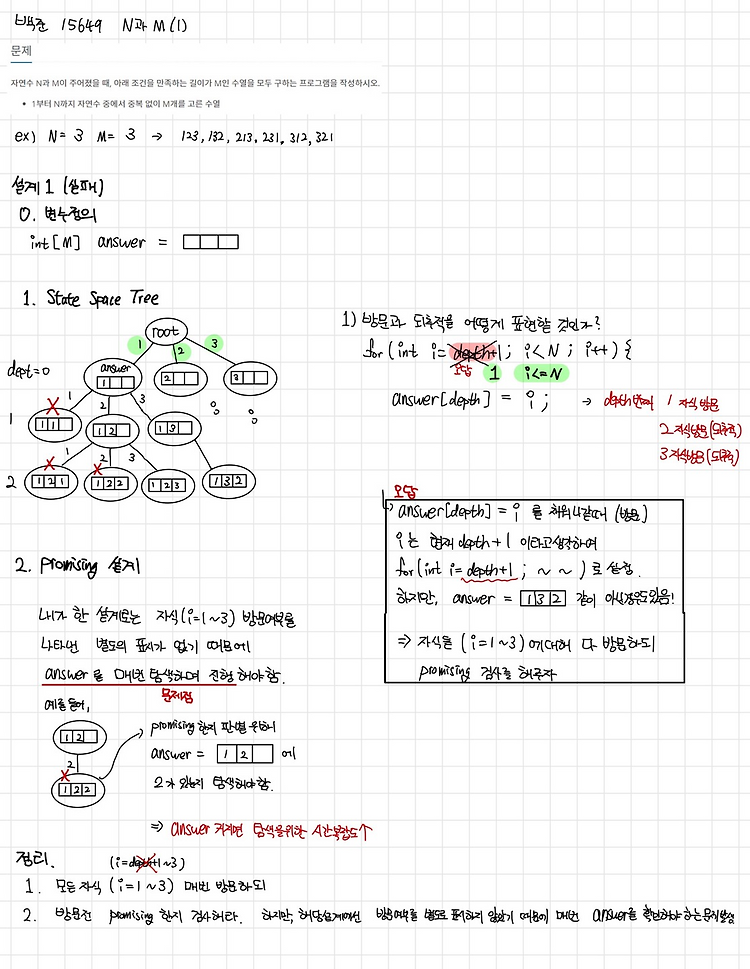 백준 15649 N과 M (1)
문제
자연수 N과 M이 주어졌을 때, 아래 조건을 만족하는 길이가 M인 수열을 모두 구하는 프로그램을 작성하시오.
• 1부터 N까지 자연수 중에서 중복 없이 M개를 고른 수열
ex) N= 3 M= 3 → 123, 132, 213, 231, 312, 321
설계1 (실패)
0. 변수정의
int[M] answer =
1. State Space Tree
root
1 2 3
dept=0
answer
1
2
3
1
1 2 3
1 1
1 2
1 3
2
1 2 3
1 2 1
1 2 2
1 2 3
1 3 2
1) 방문과 되추적을 어떻게 표현할 것인가?
for (int i= depth+1 ; i<N ; i++) {
오답 1 i<=N
answer[depth] = i ; → depth번째 1 자식 방문
2 자식방문(되추적)
3 자식방문(되추적)
오답
answer[depth] = i 를 채워나갈때 (방문)
i는 현재 depth+1 이라고생각하여
for (int i= depth+1 ; ~ ~ ) 로 설정.
하지만, answer = 1 3 2 같이 아닌경우도있음!
⇒ 자식을 (i=1~3)에대해 다 방문하되
promising 검사를 해주자
2. Promising 설계
내가 한 설계로는 자식(i=1~3) 방문여부를
나타낸 별도의 표시가 없기 때문에
answer를 매번 탐색하며 진행해야함.
문제점
예를들어,
1 2
2
1 2 2
promising 한지 판별 위해
answer = 1 2 에
2가 있는지 탐색해야함.
⇒ answer 커지면 탐색을위한 시간복잡도↑
정리.
(i=depth+1~3)
1. 모든 자식 (i=1~3) 매번 방문하되
2. 방문전 promising 한지 검사해라. 하지만, 해당설계에선 방문여부를 별도로 표시하지 않았기 때문에 매번 answer를 확인해야하는문제발생